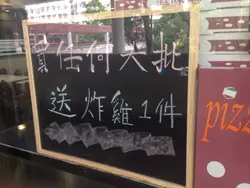 買任何大批
送炸雞1件
pizz